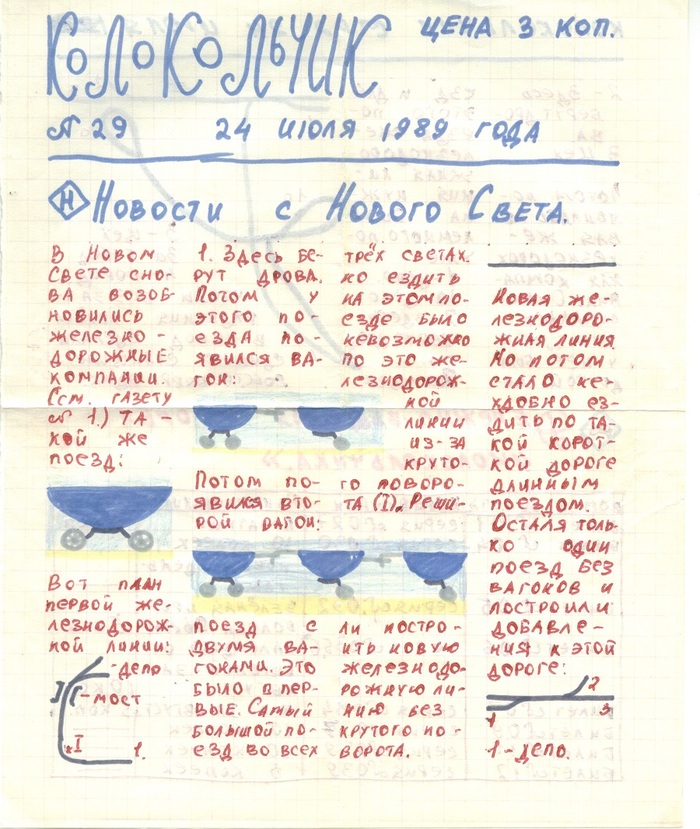 Колокольчик
ЦЕНА 3 КОП.
№ 29 24 ИЮЛЯ 1989 ГОДА
Н
Новости с Нового Света.
В Новом
Свете сно-
ва возоб-
новились
железно-
дорожные
компании
(см. газету
№ 1.) та-
кой же
поезд:
Вот план
первой же-
лезнодорож-
ной линии:
-депо
I
-мост
I
1.
1. Здесь бе-
рут дрова.
Потом у
этого по-
езда по-
явился ва-
гон:
Потом по-
явился вто-
рой вагон:
поезд с
двумя ва-
гонами. Это
было впер-
вые. Самый
большой по-
езд во всех
трёх светах.
но ездить
на этом по-
езде было
невозможно
по это же-
лезнодорож-
ной
линии
из-за
круто-
го поворо-
та (I). Реши-
ли постро-
ить новую
железнодо-
рожную ли-
нию без
крутого по-
ворота.
Новая же-
лезнодоро-
жная линия.
Но потом
стало не-
удобно ез-
дить по та-
кой корот-
кой дороге
длинным
поездом.
Осталя толь-
ко один
поезд без
вагонов и
построили
добавле-
ния к этой
дороге:
2
1 3
1-депо.